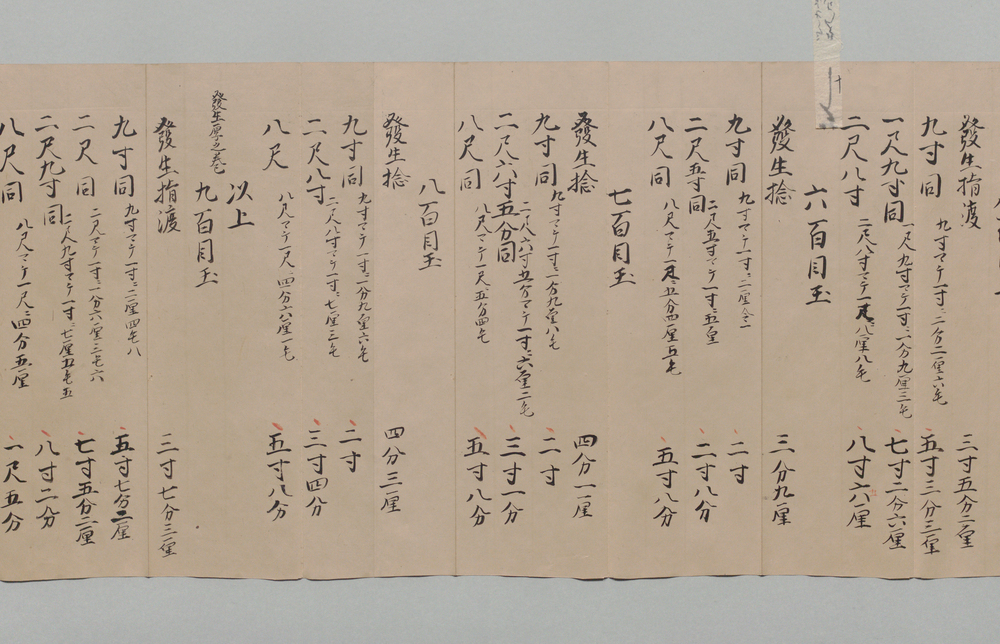 發生指渡 三寸五分二厘
九寸同 九寸マテ一寸ニ二分二厘六毛 五寸三分三厘
一尺九寸同 一尺九寸マテ一寸ニ一分九厘三毛 七寸二分六厘
二尺八寸 二尺八寸マテ一尺ニ八厘八毛 八寸六厘
六百目玉
發生捻 三分九厘
九寸同 九寸マテ一寸ニ二厘 二寸
二尺五寸同 二尺五寸マテ一寸ニ五厘 二寸八分
八尺同 八尺マテ一尺ニ五分四厘五毛 五寸八分
七百目玉
發生捻 四分一厘
九寸同 九寸マテ一寸ニ一分九厘八毛 二寸
二尺六寸五分同 二尺六寸五分マテ一寸ニ六厘二毛 三寸一分
八尺同 八尺マテ一尺ニ五分四毛 五寸八分
八百目玉
發生捻 四分三厘
九寸同 九寸マテ一寸ニ一分九厘六毛 二寸
二尺八寸 二尺八寸マテ一寸ニ七厘三毛 三寸四分
八尺 八尺マテ一尺ニ四分六厘一毛 五寸八分
以上
發生厚之巻
九百目玉
發生指渡 三寸七分三厘
九寸同 九寸マテ一寸ニ二厘四毛八 五寸七分二厘
二尺同 二尺マテ一寸ニ一分六厘三毛六 七寸五分二厘
二尺九寸同 二尺九寸マテ一寸ニ七厘五毛五 八寸二分
八尺同 八尺マテ一尺ニ四分五厘 一尺五分